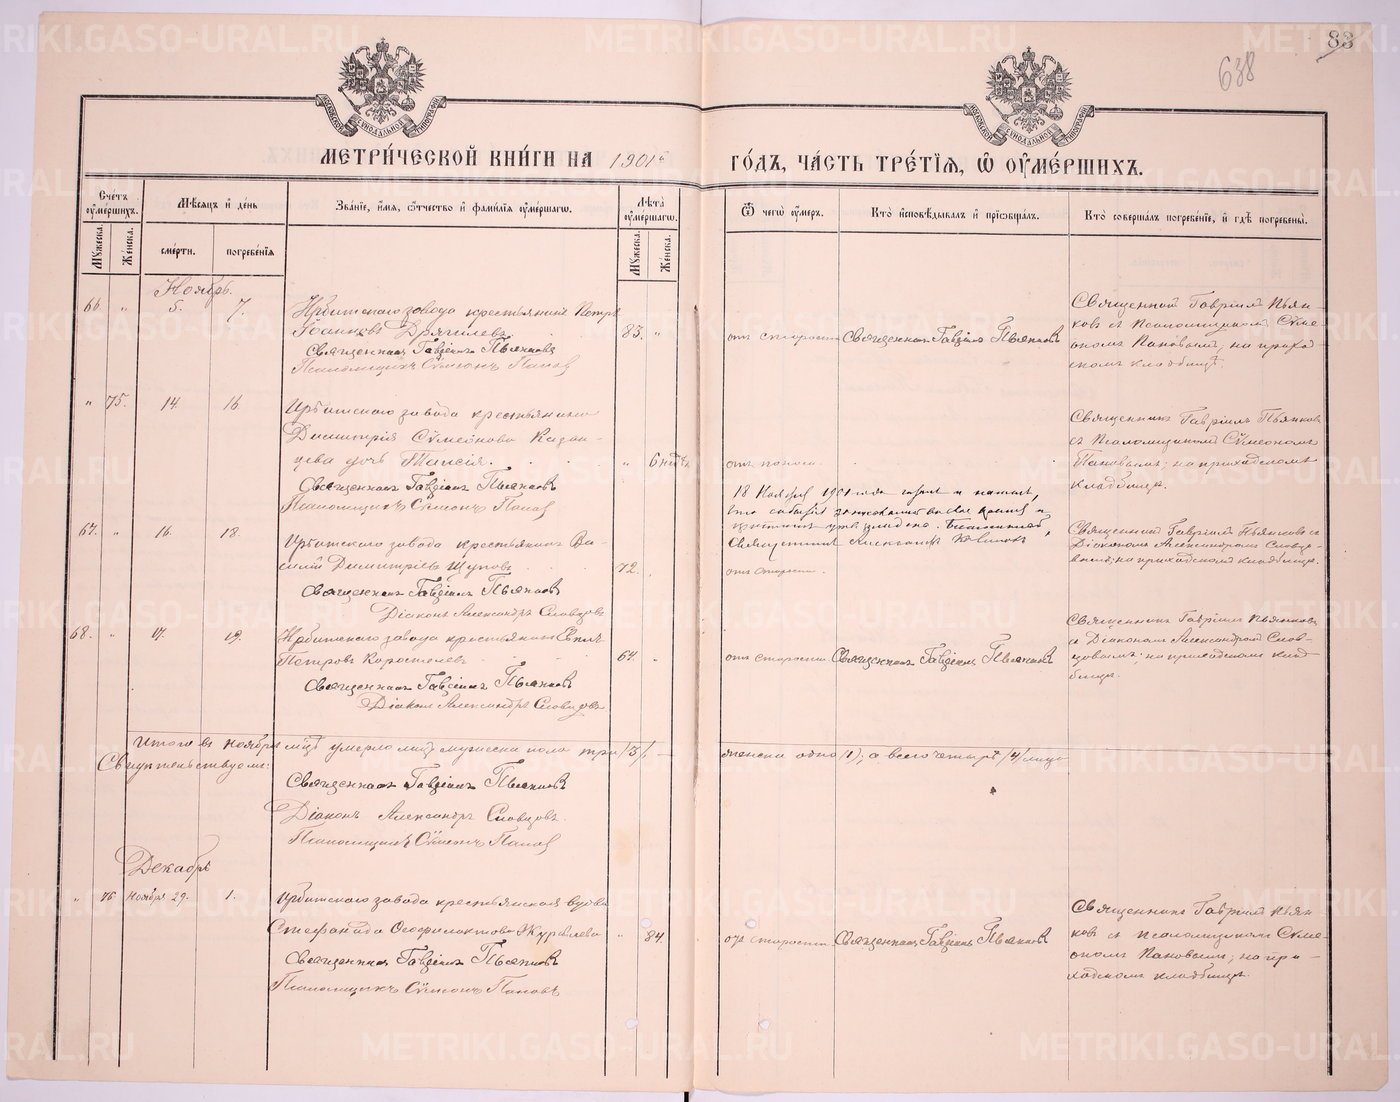 83
638
МЕТРИ́ЧЕСКОЙ КНИ́ГИ НА 1901й ГО́ДЪ, ЧА́СТЬ ТРЕ́ТІЯ, Ѿ ОУМЕ́РШИХЪ.
Счетъ оумершихъ.
Мѣсяцъ и день
Званіе, имя, отчество и фамилія оумершаго.
Лѣта оумершаго.
Ѿ чегѡ оумеръ.
Кто исповѣдывалъ и пріобщалъ.
Кто совершалъ погребеніе, и гдѣ погребены.
Мужеска.
Женска.
смерти.
погребенія
Мужеска.
Женска.
Ноябрь.
66. " 5. 7.
Ирбитскаго завода крестьянинъ Петръ
Іоанновъ Дрягилевъ 83. "
Священникъ Гавріилъ Пьянковъ
Псаломщикъ Сѵмеонъ Пановъ
отъ старости Священникъ Гавріилъ Пьянковъ
Священникъ Гавріилъ Пьян-
ковъ съ Псаломщикомъ Сѵме-
ономъ Пановымъ, на приход-
скомъ кладбищѣ.
" 75. 14. 16.
Ирбитскаго завода крестьянина
Димитрія Сѵмеонова Казан-
цева дочь Таисія. " 6 нед.
Священникъ Гавріилъ Пьянковъ
Псаломщикъ Сѵмеонъ Пановъ
отъ поноса.
Священникъ Гавріилъ Пьянковъ
съ Псаломщикомъ Сѵмеономъ
Пановымъ; на приходскомъ
кладбищѣ.
18 Ноября 1901 года
67. " 16. 18.
Ирбитскаго завода крестьянинъ Ва-
силій Димитріевъ Щуповъ 72.
Священникъ Гавріилъ Пьянковъ
Діаконъ Александръ Словцовъ
отъ старости.
Священникъ Гавріилъ Пьянковъ съ
Діакономъ Александромъ Словцо-
вымъ; на приходскомъ кладбищѣ.
68. " 17. 19.
Ирбитскаго завода крестьянинъ
Петровъ Коростелевъ 64. "
Священникъ Гавріилъ Пьянковъ
Діаконъ Александръ Словцовъ
отъ старости Священникъ Гавріилъ Пьянковъ
Священникъ Гавріилъ Пьянковъ
съ Діакономъ Александромъ Слов-
цовымъ; на приходскомъ клад-
бищѣ.
Итого въ ноябрѣ мцѣ умерло лицъ мужеска пола три /3/, женска одно /1/, а всего четыре /4/ лица
Свидѣтельствуемъ:
Священникъ Гавріилъ Пьянковъ
Діаконъ Александръ Словцовъ.
Псаломщикъ Сѵмеонъ Пановъ
Декабрь
" 76 Ноября 29. 1.
Ирбитскаго завода крестьянская вдова
Стефанида Ѳеофилактова Журавлева " 84.
Священникъ Гавріилъ Пьянковъ
Псаломщикъ Сѵмеонъ Пановъ
отъ старости Священникъ Гавріилъ Пьянковъ
Священникъ Гавріилъ Пьян-
ковъ съ Псаломщикомъ Сѵме-
ономъ Пановымъ; на при-
ходскомъ кладбищѣ.
METRIKI.GASO-URAL.RU